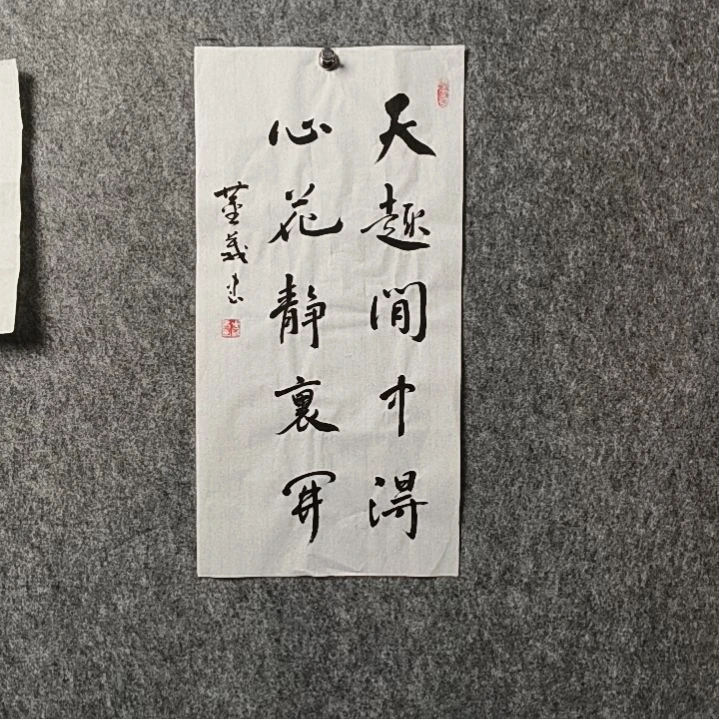 天趣閒中得
心花静裏開
董義书